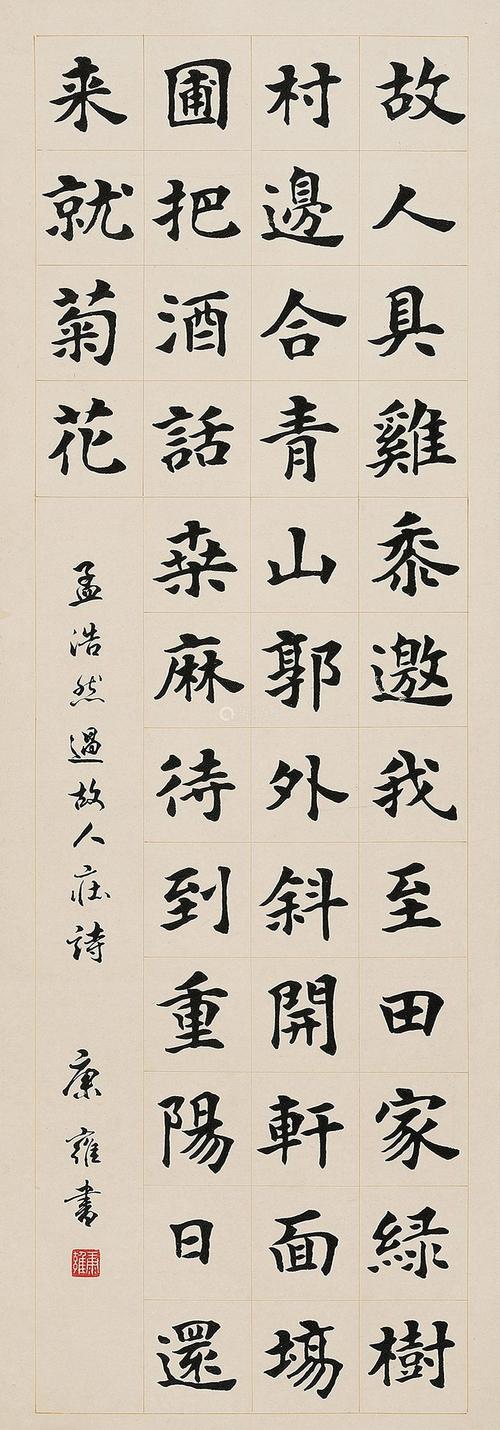 故人具雞黍邀我至田家緑樹
村邊合青山郭外斜開軒面場
圃把酒話桒麻待到重陽日還
来就菊花
孟浩然過故人庄詩
康雍書
康雍